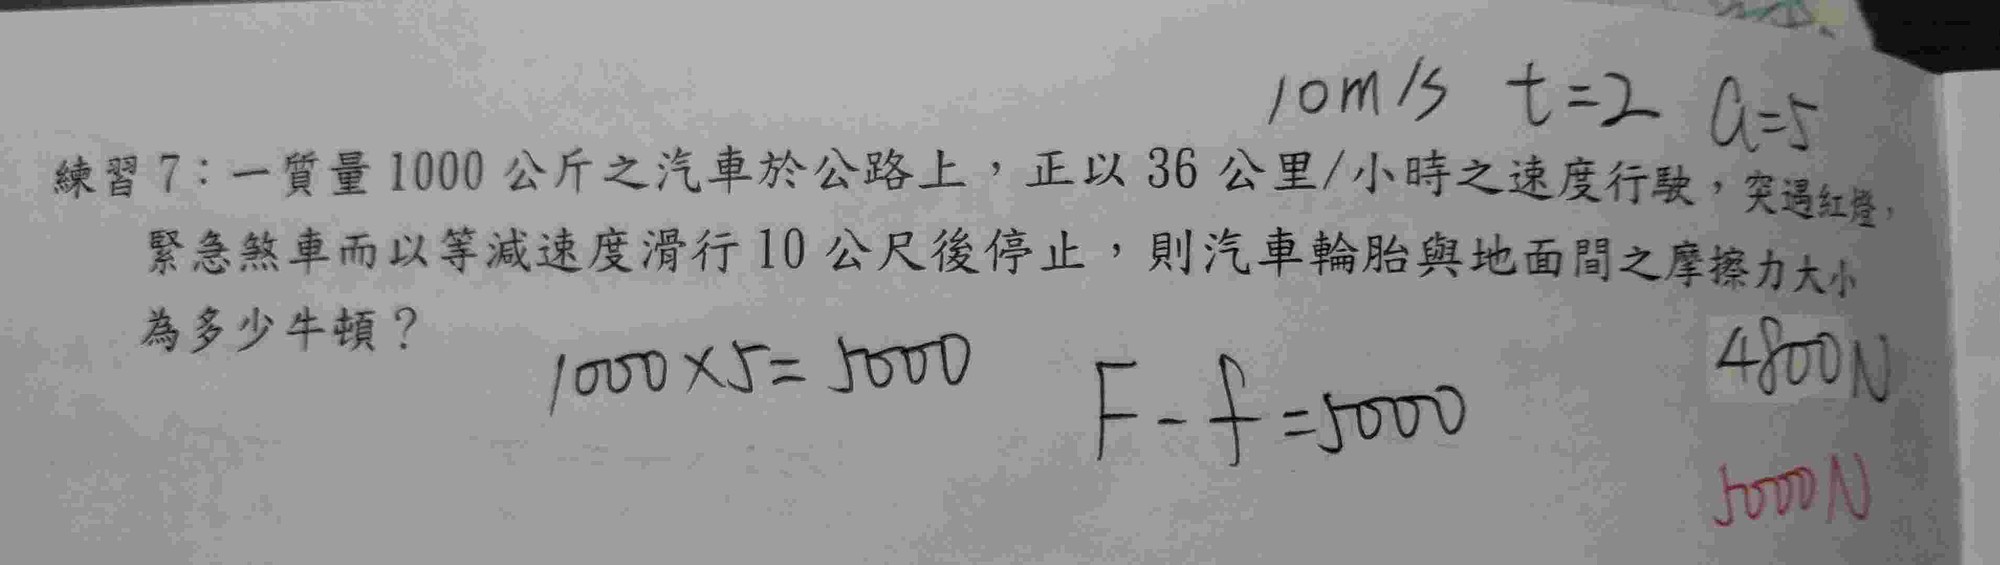 10m/s t=2 a=5
練習7：一質量1000公斤之汽車於公路上，正以36公里/小時之速度行駛，突遇紅燈，
緊急煞車而以等減速度滑行10公尺後停止，則汽車輪胎與地面間之摩擦力大小
為多少牛頓？
1000×5=5000
F-f=5000
4800N
5000N